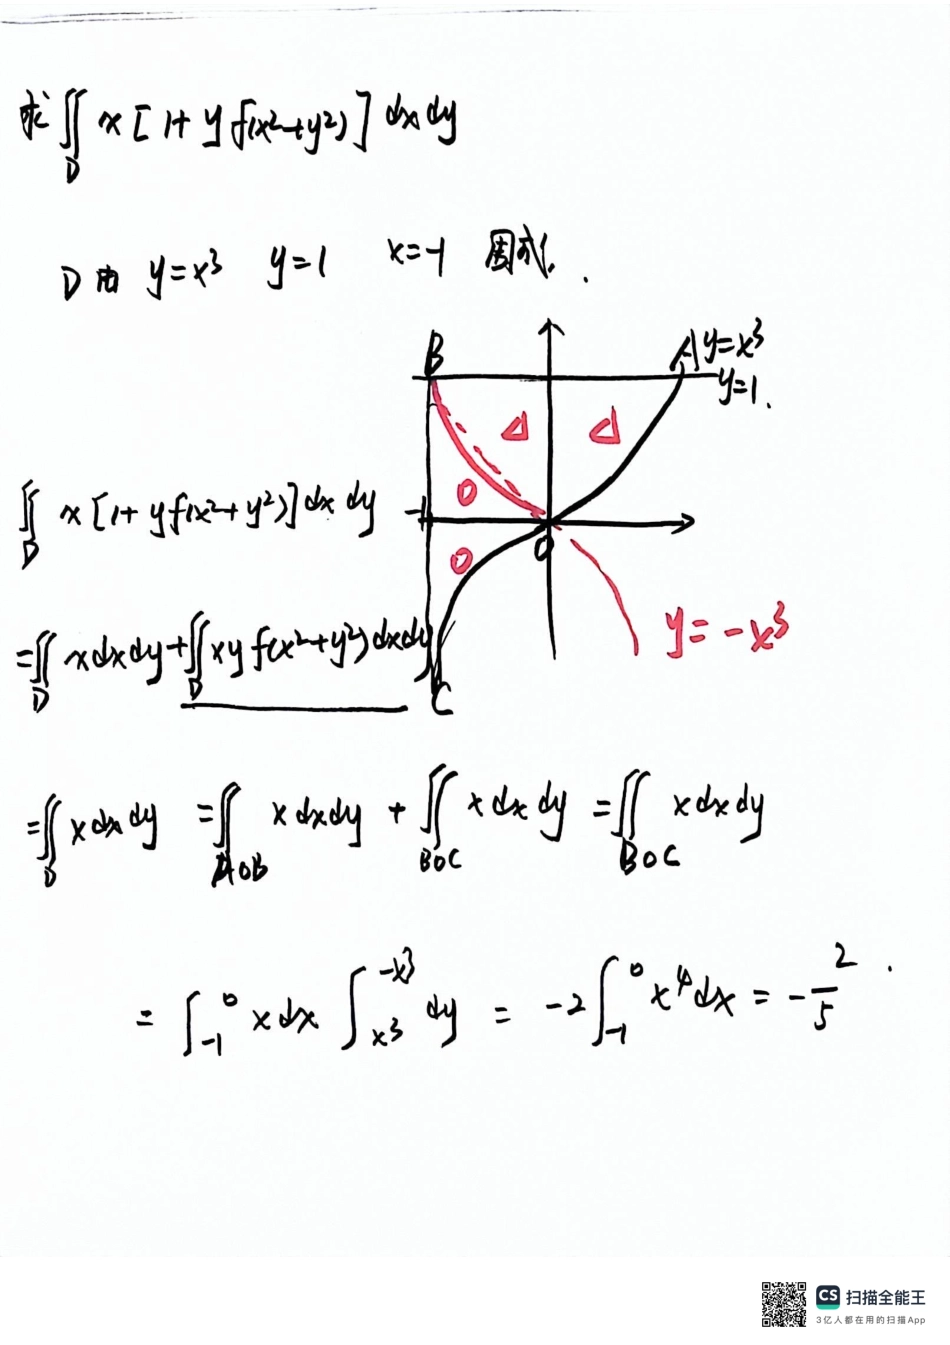 求∬_D x[1+yf(x²+y²)]dxdy
D由 y=x³ y=1 x=-1 围成.
B
A y=x³
y=1.
Δ Δ
0
∬_D x[1+yf(x²+y²)]dxdy
-1
0
0
y=-x³
=∬_D xdxdy+∬_D xyf(x²+y²)dxdy
C
=∬_D xdxdy =∬_AOB xdxdy + ∬_BOC xdxdy =∬_BOC xdxdy
= ∫_-1^0 xdx ∫_x³^-x³ dy = -2∫_-1^0 x⁴dx = -2/5.
CS 扫描全能王
3亿人都在用的扫描App